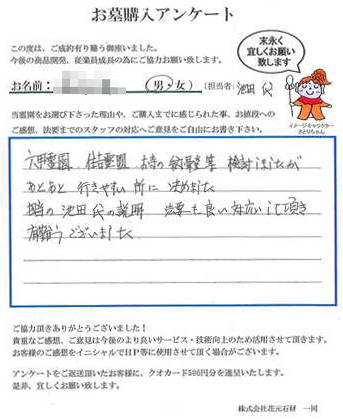 お墓購入アンケート
この度は、ご成約有り難う御座いました。
今後の商品開発、従業員成長の為にご協力お願い致します。
末永く
宜しくお願い
致します
お名前：
男・女
(担当者: 池田 代
イメージキャラクター
さとりちゃん
当霊園をお選び下さった理由や、ご購入までに感じられた事、お値段への
ご感想、法要までのスタッフの対応へご意見をご自由にお書き下さい。
六甲霊園、住吉霊園、検討しましたが
あとあと 行きやすい 所に 決めました
担当の 池田 代の説明 法要も良い対応して頂き
有難うございました
ご協力頂きありがとうございました！
貴重なご感想、ご意見は今後のより良いサービス・技術向上のため活用させて頂きます。
お客様のご感想をイニシャルでＨＰ等に使用させて頂く場合がございます。
アンケートをご返送頂いたお客様に、クオカード500円分を進呈いたします。
是非、宜しくお願い致します。
株式会社花元石材 一同